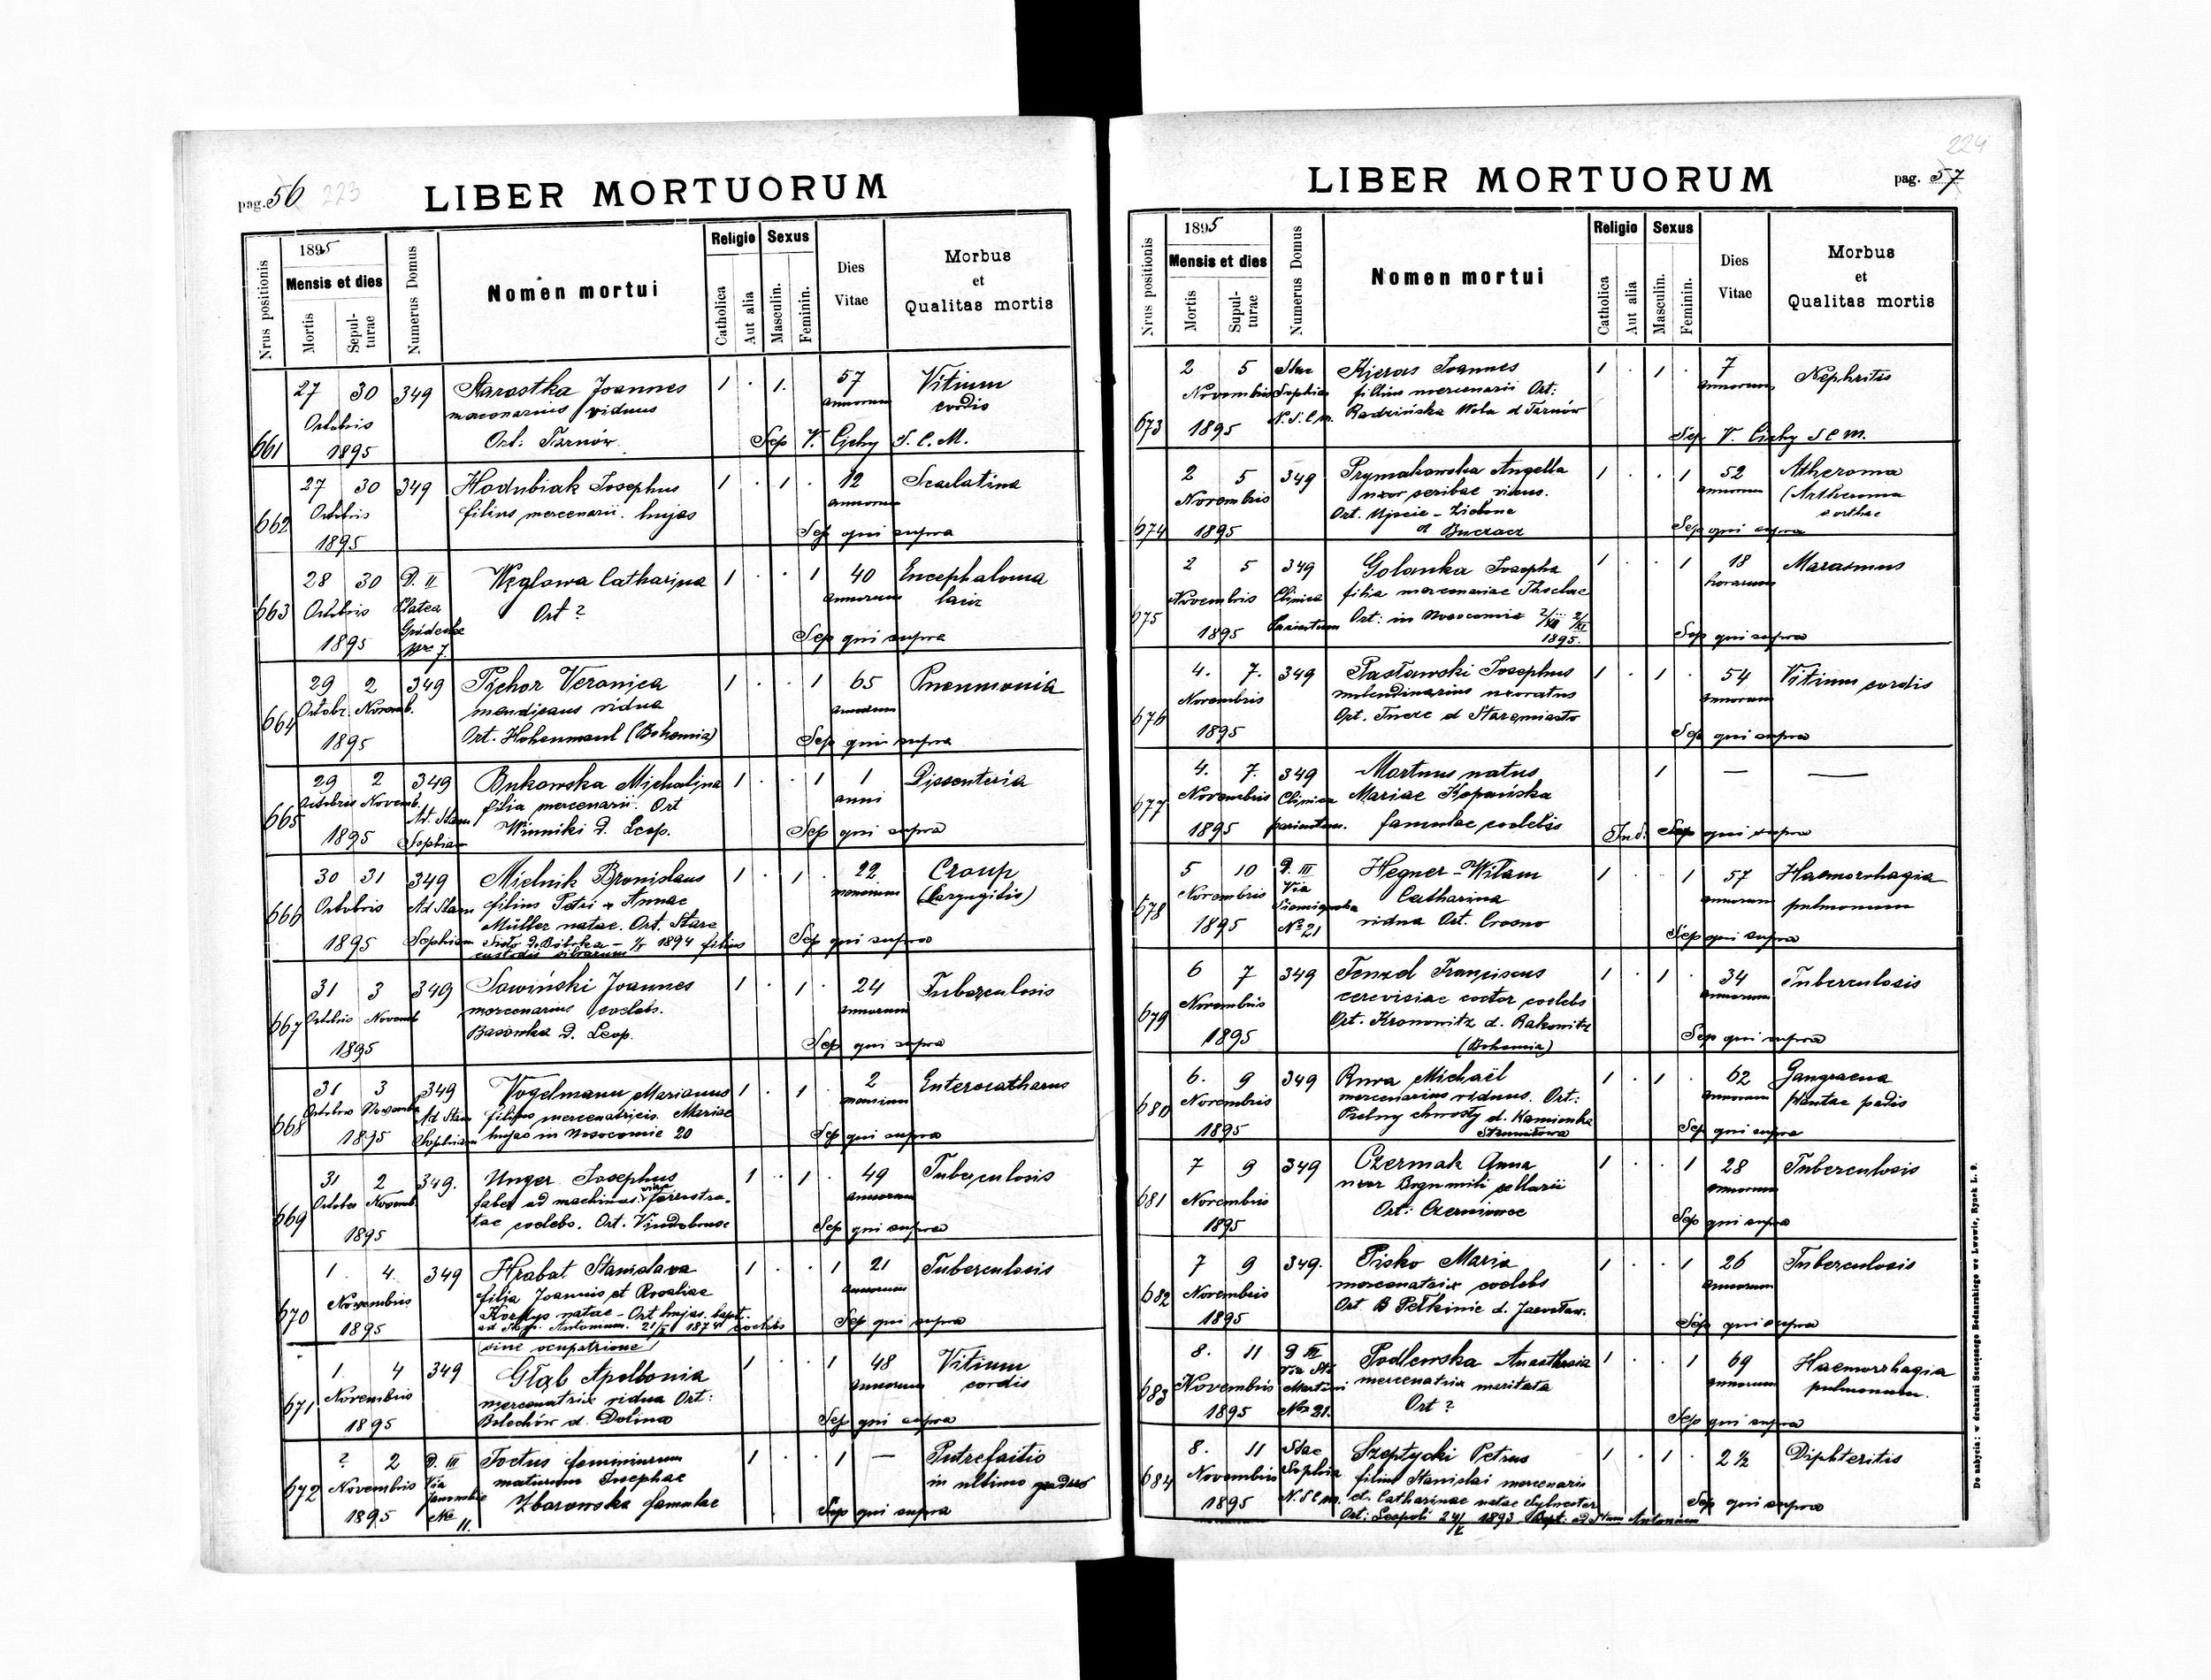 pag. 56 223
LIBER MORTUORUM
Nrus positionis
1895
Mensis et dies
Mortis
Sepul-
turae
Numerus Domus
Nomen mortui
Religio
Catholica
Aut alia
Sexus
Masculin.
Feminin.
Dies
Vitae
Morbus
et
Qualitas mortis
27 30 349 Starostka Joannes 1 . 1. 57 Vitium
Octobris viduus annorum cordis
661 1895 Ort: Tarnów. Sep V. Cichy S. C. M.
27 30 349 Hodubiak Josephus 1 . 1 . 12 Scarlatina
662 Octobris filius mercenarii. hujas annorum
1895 Sep qui supra
28 30 D. II Węglowa Catharina 1 . . 1 40 Encephaloma
663 Octobris Platea Ort ? annorum
1895 Nro 7. Sep qui supra
29 2 349 Pichor Veronica 1 . . 1 65 Pneumonia
664 Octobr. Novemb. mendicans vidua annorum
1895 Ort. Hohenmaul (Bohemia) Sep qui supra
29 2 349 Bukowska Michalina 1 . . 1 1 Dissenteria
665 Octobris Novemb. Ad. Stam filia mercenarii. Ort anni
1895 Sophiam Winniki D. Leop. Sep qui supra
30 31 349 Mielnik Bronislaus 1 . 1 . 22 Croup
666 Octobris Ad Stam filius Petri & Annae mensium (Laryngitis)
Müller natae. Ort. Stare
1895 Sophiam Sioło D. Bóbrka 1894 filius Sep qui supra
custodis silvarum
31 3 349 Sowiński Joannes 1 . 1 . 24 Tuberculosis
667 Octobris Novemb mercenarius coelebs. annorum
1895 Basówka D. Leop. Sep qui supra
31 3 349 Vogelmann Marianus 1 . 1 . 2 Enterocatharus
668 Octobris Novemb Ad Stam filius mercenatricis Mariae mensium
1895 Sophiam hujas in Nosocomie 20 Sep qui supra
31 2 349. Unger Josephus 1 . 1 . 49 Tuberculosis
669 Octobr Novemb. faber ad machinas viae ferrostra- annorum
1895 tae coelebs. Ort. Vindobonae Sep qui supra
1 4. 349 Hrabat Stanislava 1 . . 1 21 Tuberculosis
670 Novembris filia Joannis et Rosaliae annorum
natae - Ort hujas. bapt.
1895 ad Antonium. 1874 coelebs Sep qui supra
sine ocupatione
1. 4 349 Głąb Apollonia 1 . . 1 48 Vitium
671 Novembris mercenatrix vidua Ort: annorum cordis
1895 Bolechów d. Dolina Sep qui supra
? 2 D. III Foetus femininum 1 . . 1 — Putrefaitio
672 Novembris Via maturum Josephae in ultimo gradus
1895 Janowska Nro 11. Zborowska famulae Sep qui supra
224
LIBER MORTUORUM
pag. 57
Nrus positionis
1895
Mensis et dies
Mortis
Supul-
turae
Numerus Domus
Nomen mortui
Religio
Catholica
Aut alia
Sexus
Masculin.
Feminin.
Dies
Vitae
Morbus
et
Qualitas mortis
2 5 Stae Kjeras Joannes 1 . 1 . 7 Nephritis
Novembris Sophia filius mercenarii Ort: annorum
673 1895 N. S. C. m. Radzińska Wola d Tarnów
Sep V. Cichy S C m.
2 5 349 Prymakowska Angella 1 . . 1 52 Atheroma
Novembris uxor scribae annorum (Artheroma
674 1895 Ort. Ujscie - Zielone aorthae
d Buczacz Sep qui supra
2 5 349 Golonka Josepha 1 . . 1 18 Marasmus
675 Novembris Clinica filia mercenariae Theclae horarum
1895 Parientum Ort: in Nosocomio
1895. Sep qui supra
4. 7. 349 Pasławski Josephus 1 . 1 . 54 Vitium cordis
Novembris molendinarius uxoratus annorum
676 1895 Ort. d Staremiasto Sep qui supra
4. 7. 349 Mortuus natus 1 — —
677 Novembris Clinica Mariae Kopańska
1895 parientum. famulae coelebis Ind: Sep qui supra
5 10 D. III Hegner - Witam 1 . . 1 57 Haemorrhagia
678 Novembris Via Catharina annorum pulmonum
1895 No 21 vidua Ort. Crosno Sep qui supra
6 7 349 Tenzel Franciscus 1 . 1 . 34 Tuberculosis
679 Novembris cerevisiae coctor coelebs annorum
1895 Ort. Kronowitz d. Rakowitz Sep qui supra
(Bohemia)
6. 9 349 Ruwa Michaël 1 . 1 . 62 Gangraena
680 Novembris mercenarius viduus. Ort: annorum plantae pedis
1895 d. Kamionka Sep qui supra
Strumiłowa
7 9 349 Czermak Anna 1 . . 1 28 Tuberculosis
681 Novembris uxor Bogumili sellarii annorum
1895 Ort: Czerniowce Sep qui supra
7 9 349. Pisko Maria 1 . . 1 26 Tuberculosis
682 Novembris mercenatrix coelebs annorum
1895 Ort B Pełkinie d. Jarosław. Sep qui supra
8. 11 D III Podlewska Anasthasia 1 . . 1 69 Haemorrhagia
683 Novembris Via Sti Martini mercenatrix maritata annorum pulmonum.
1895 Nro 21. Ort ? Sep qui supra
8. 11 Stae Szeptycki Petrus 1 . 1 . 2 ½ Diphteritis
684 Novembris Sophia filius Stanislai mercenarii
1895 N. S C m. et Catharinae natae Sylvester Sep qui supra
Ort: Leopoli 1893 Bapt: ad Stum Antonium
Do nabycia: w drukarni Szczęsnego Bednarskiego we Lwowie, Rynek L. 9.